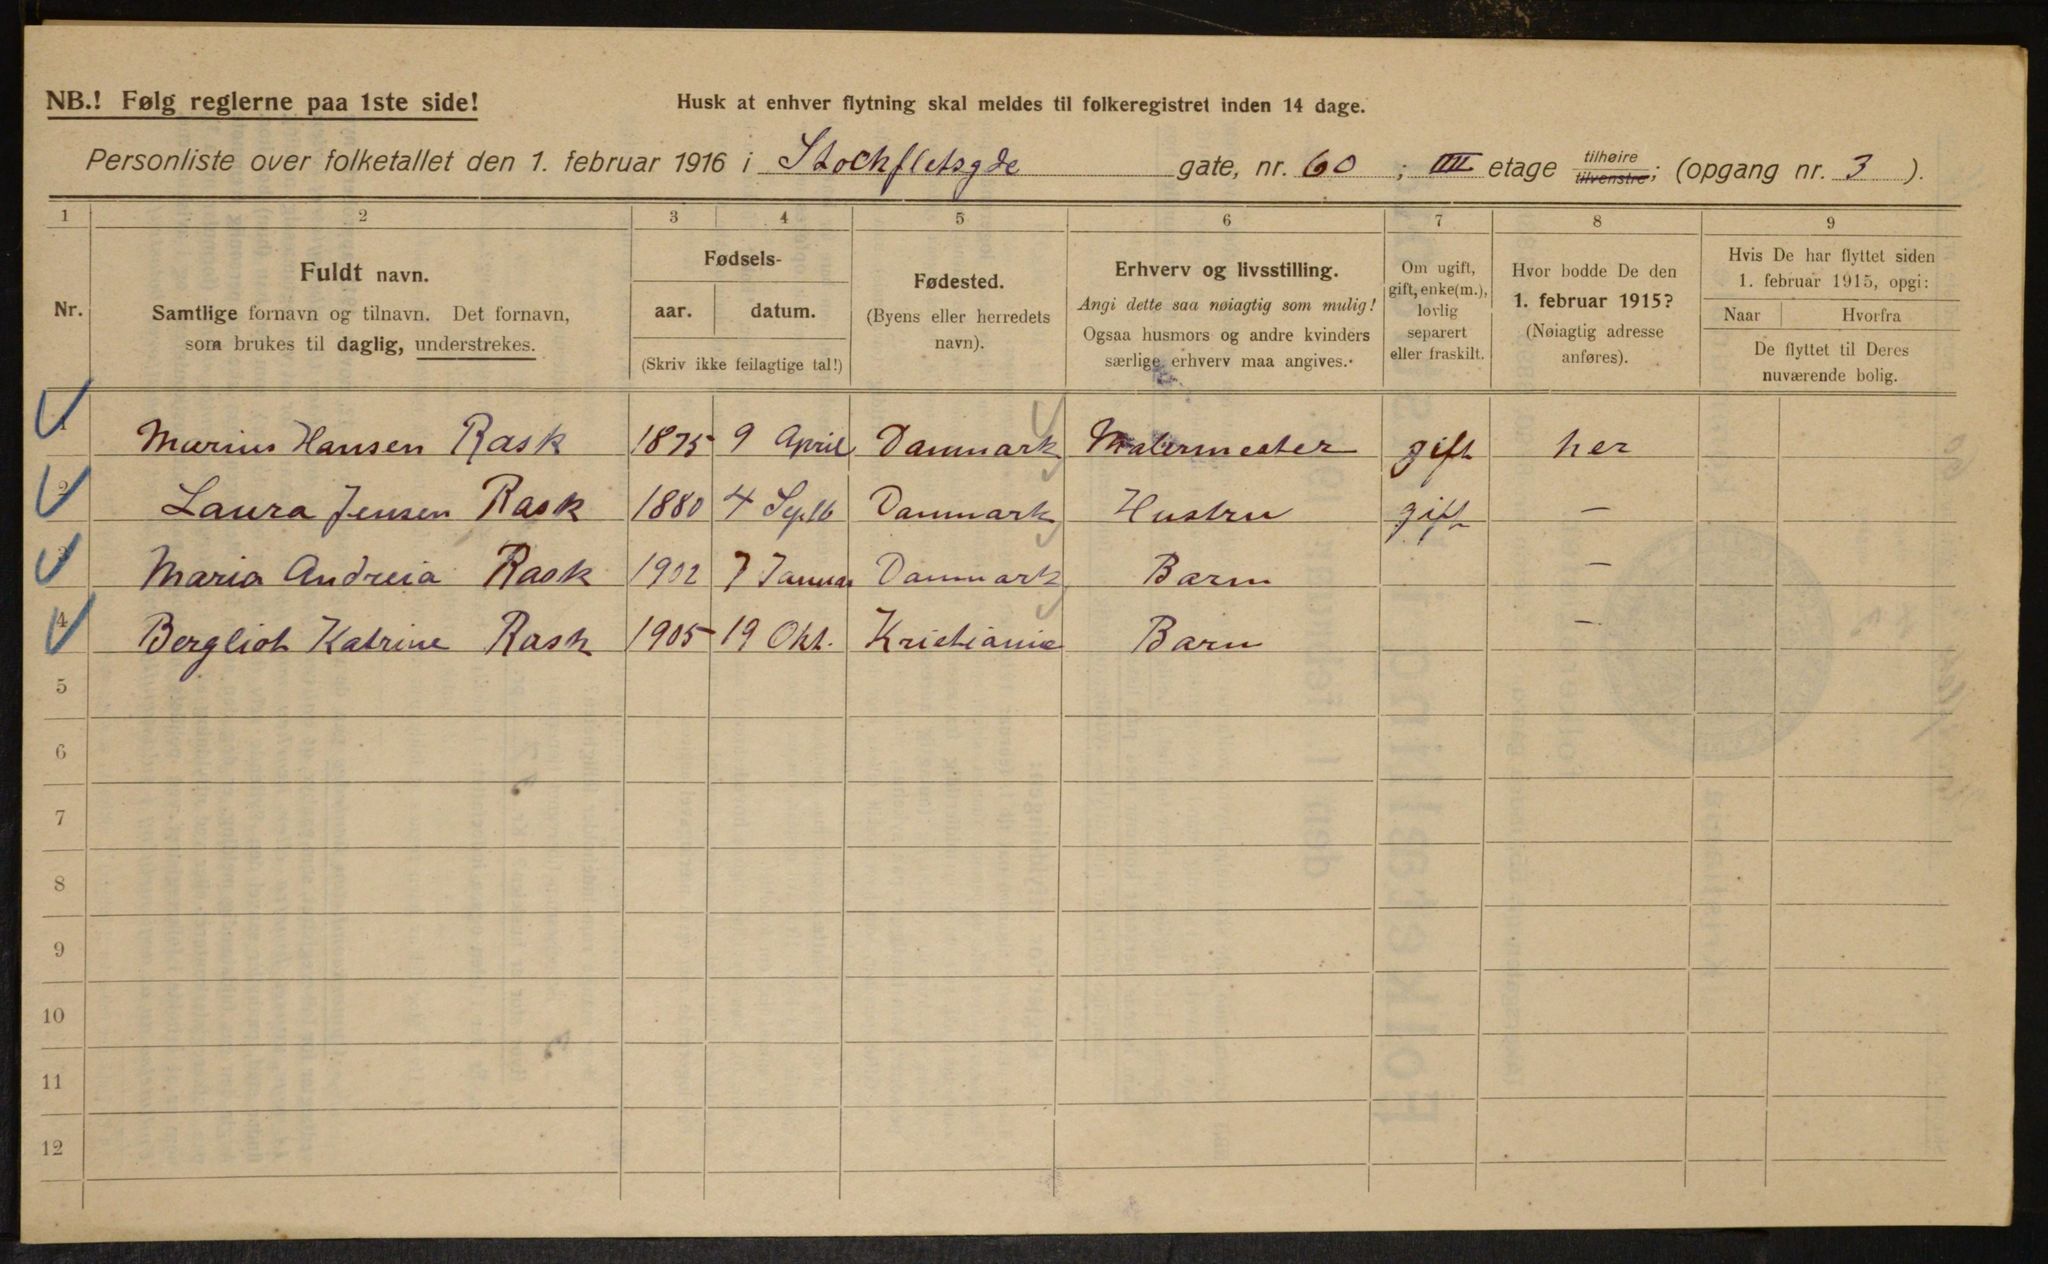 NB.! Følg reglerne paa 1ste side!
Husk at enhver flytning skal meldes til folkeregistret inden 14 dage.
Personliste over folketallet den 1. februar 1916 i Stockfletsgde gate, nr. 60 ; IIII etage tilhøire tilvenstre; (opgang nr. 3 ).
1 2 3 4 5 6 7 8 9
Nr.
Fuldt navn.
Samtlige fornavn og tilnavn. Det fornavn,
som brukes til daglig, understrekes.
Fødsels-
aar. datum.
(Skriv ikke feilagtige tal!)
Fødested.
(Byens eller herredets
navn).
Erhverv og livsstilling.
Angi dette saa nøiagtig som mulig!
Ogsaa husmors og andre kvinders
særlige erhverv maa angives.
Om ugift,
gift, enke(m.),
lovlig
separert
eller fraskilt.
Hvor bodde De den
1. februar 1915?
(Nøiagtig adresse
anføres).
Hvis De har flyttet siden
1. februar 1915, opgi:
Naar Hvorfra
De flyttet til Deres
nuværende bolig.
1 Marius Hansen Rask 1875 9 April Danmark Malermester gift her
2 Laura Jensen Rask 1880 4 Septb Danmark Hustru gift —
3 Maria Andreia Rask 1902 7 Januar Danmark Barn —
4 Bergliot Katrine Rask 1905 19 Okt. Kristiania Barn —
5
6
7
8
9
10
11
12